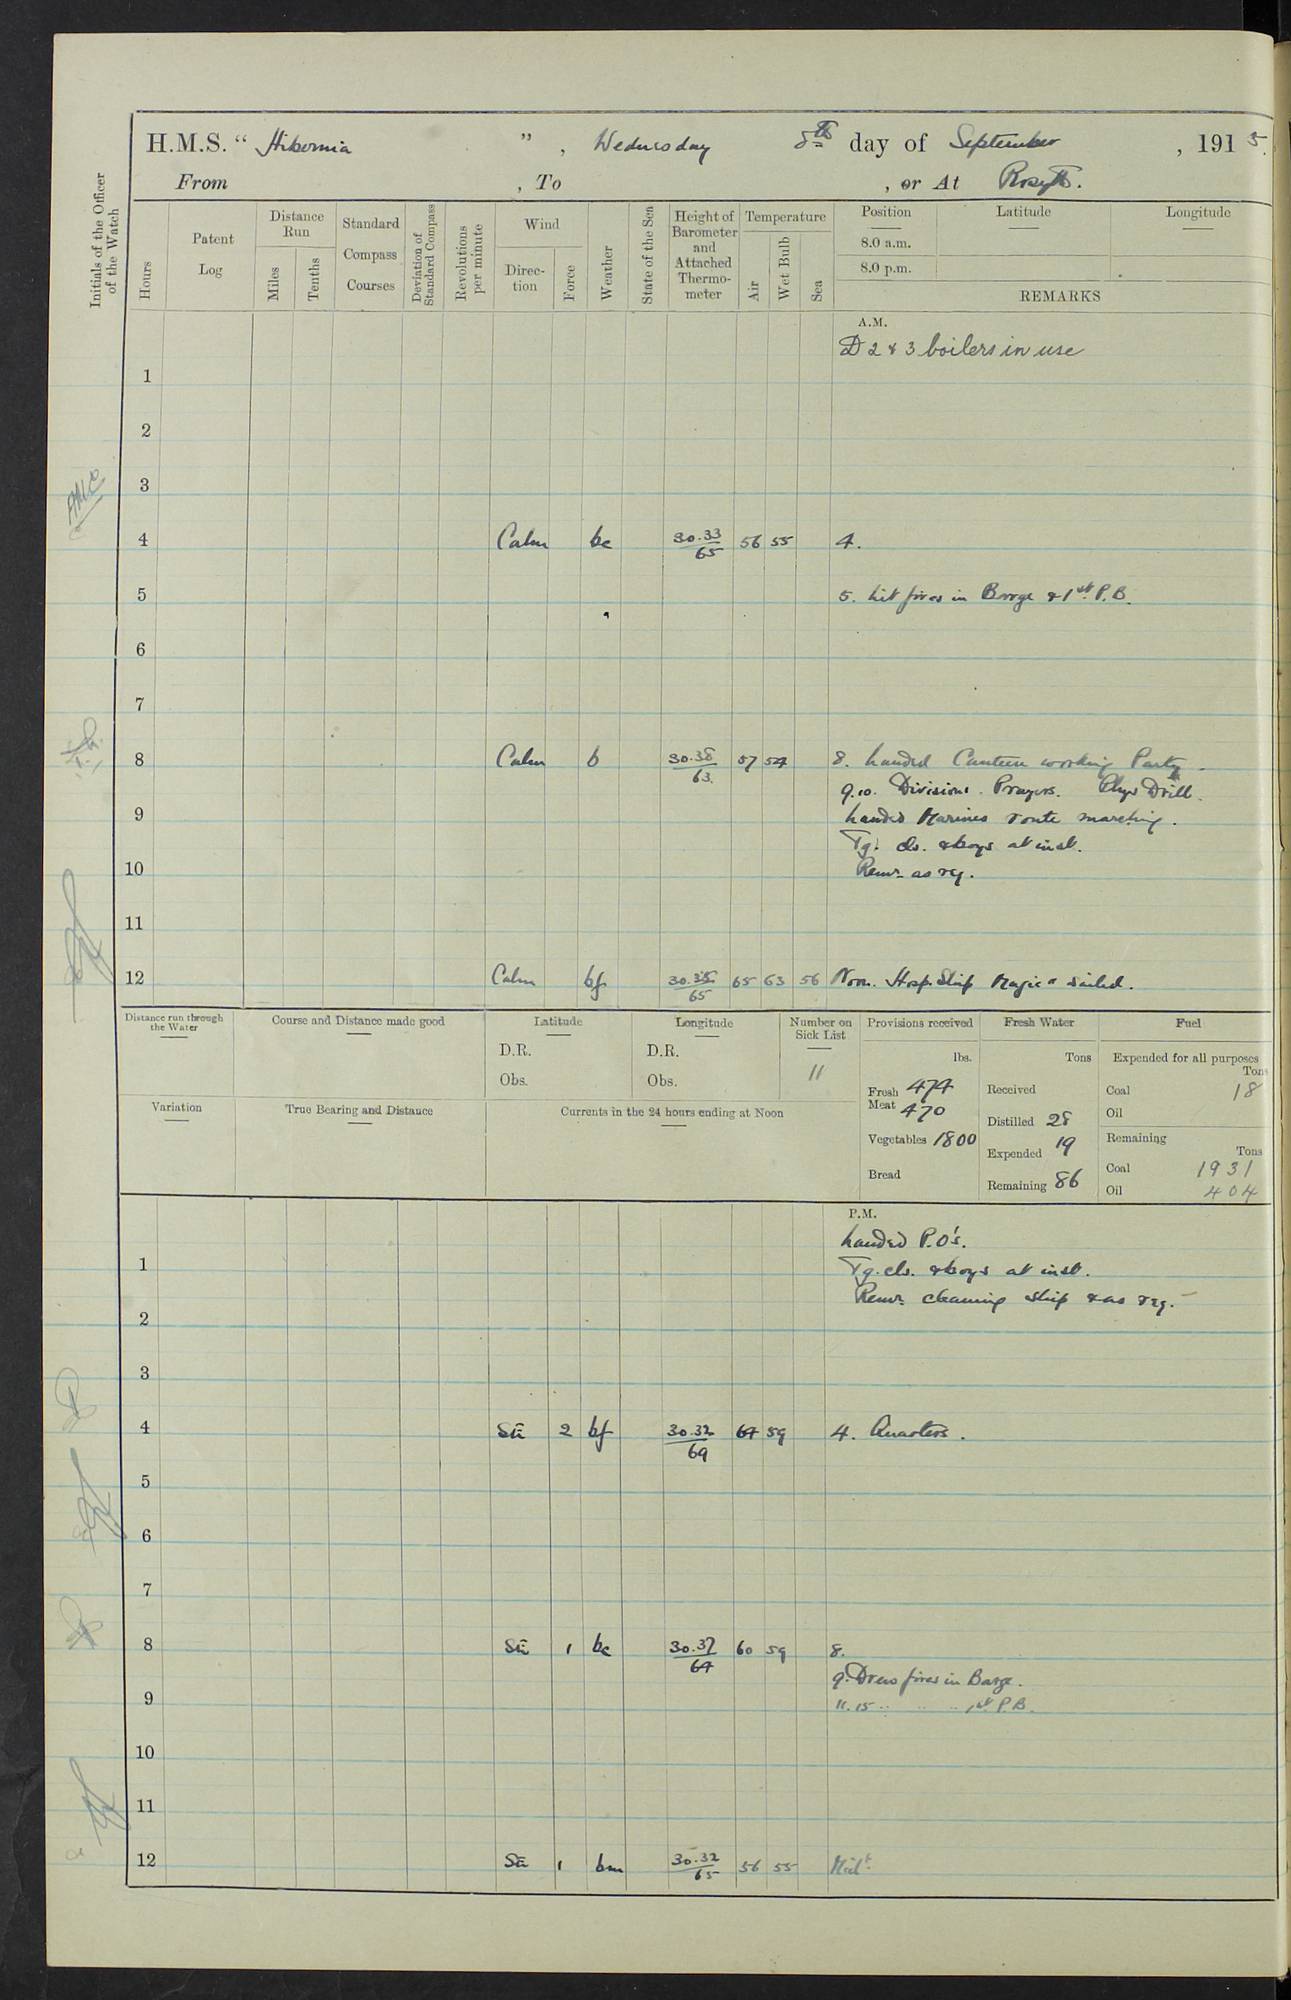 H.M.S. “ Hibernia ” , Wednesday 8th day of September , 1915.
From , To , or At Rosyth.
Initials of the Officer of the Watch
Hours
Patent Log
Distance Run
Miles
Tenths
Standard Compass Courses
Deviation of Standard Compass
Revolutions per minute
Wind
Direction
Force
Weather
State of the Sea
Height of Barometer and Attached Thermometer
Temperature
Air
Wet Bulb
Sea
Position Latitude Longitude
8.0 a.m.
8.0 p.m.
REMARKS
A.M.
D 2 & 3 boilers in use
1
2
3
4 Calm bc 30.33/65 56 55 4.
5 5. Lit fires in Barge & 1st P.B.
6
7
8 Calm b 30.38/63. 57 54 8. Landed Canteen working Party.
9.10. Divisions. Prayers. Phys Drill.
9 Landed Marines route marching.
Tg. cls. & boys at inst.
10 Remr. as req.
11
12 Calm bf 30.35/65 65 63 56 Noon. Hosp. Ship Magic" sailed.
Distance run through the Water
Course and Distance made good
Latitude
D.R.
Obs.
Longitude
D.R.
Obs.
Number on Sick List
11
Provisions received
lbs.
Fresh Meat 474
470
Vegetables 1800
Bread
Fresh Water
Tons
Received
Distilled 28
Expended 19
Remaining 86
Fuel
Expended for all purposes
Tons
Coal 18
Oil
Remaining
Tons
Coal 1931
Oil 404
Variation
True Bearing and Distance
Currents in the 24 hours ending at Noon
P.M.
Landed P.O's.
1 Tg. cls. & boys at inst.
Remr. cleaning ship & as req.
2
3
4 2 bf 30.32/69 64 59 4. Quarters.
5
6
7
8 1 bc 30.37/64 60 59 8.
9. Drew fires in Barge.
9 11.15 .. .. .. 1st P.B.
10
11
12 1 bm 30.32/65 56 55 Midt.